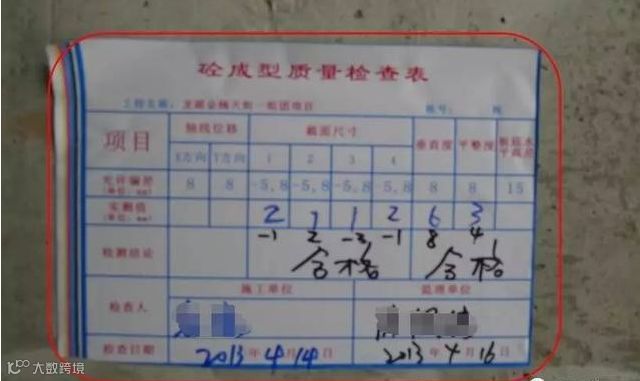 砼成型质量检查表
工程名称: 龙湖金楠天街一组团项目 栋号: 栋
项目 轴线位移 截面尺寸 垂直度 平整度 板底水平高差
X方向 Y方向 1 2 3 4
允许偏差(单位:mm) 8 8 -5,8 -5,8 -5,8 -5,8 8 8 15
实测值(单位:mm) 2 1 1 2 6 3
-1 2 -3 -1 8 4
检测结论 合格 合格
施工单位 监理单位
检查人
检查日期 2013年4月14日 2013年4月16日
100 大数跨境